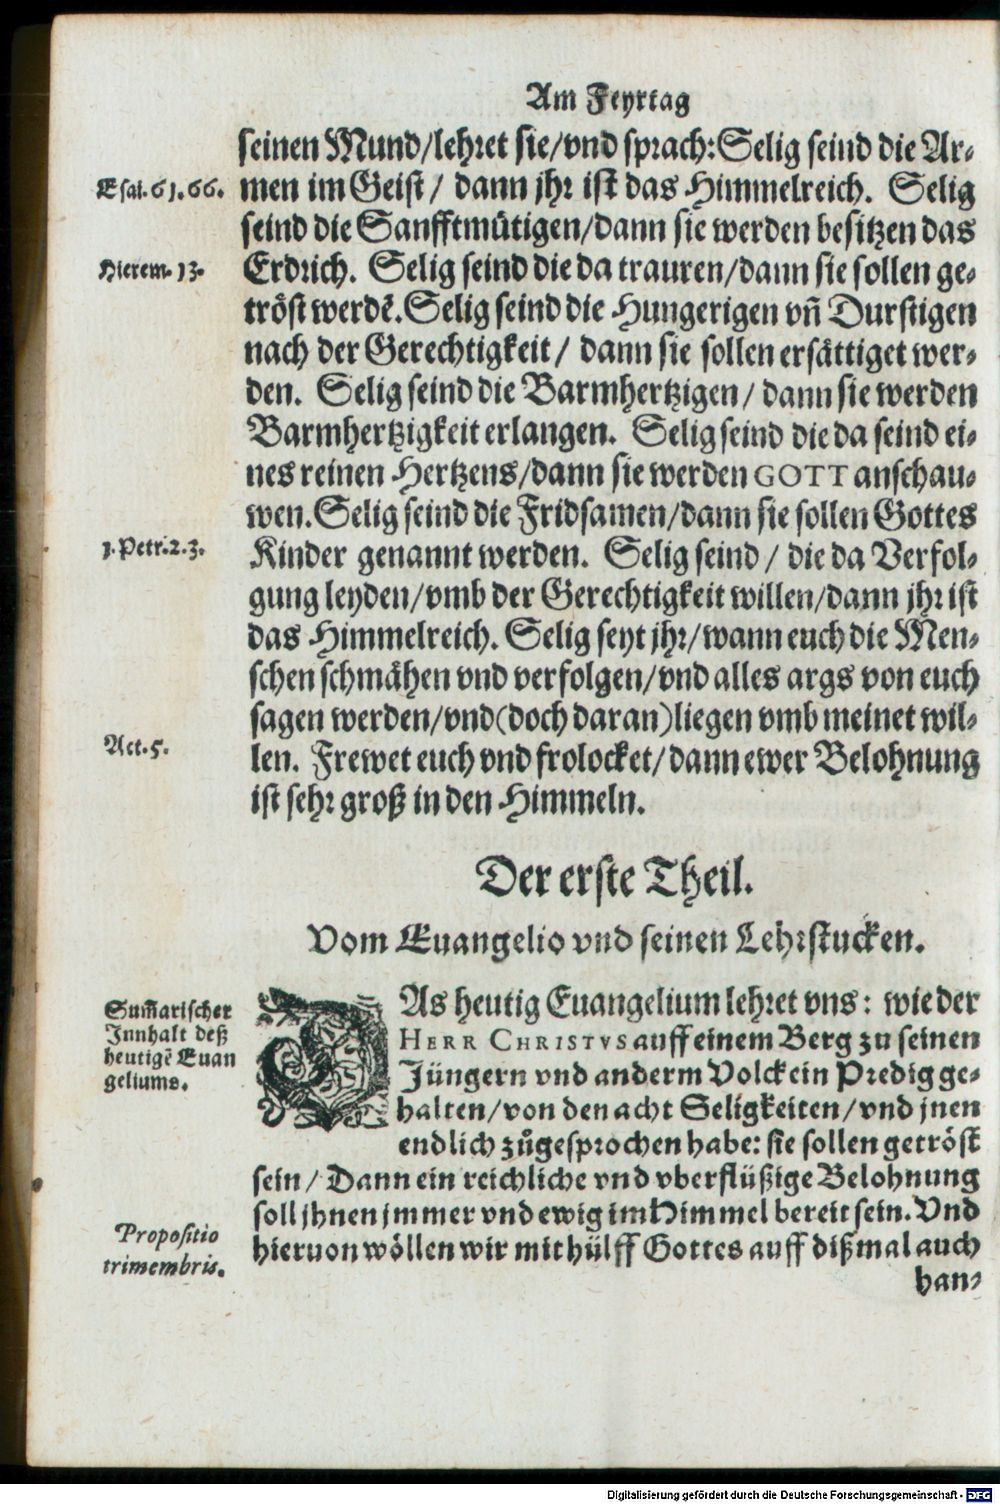 Am Feyrtag
seinen Mund/lehret sie/vnd sprach:Selig seind die Ar-
Esai.61.66.
men im Geist/ dann jhr ist das Himmelreich. Selig
seind die Sanfftmütigen/dann sie werden besitzen das
Hierem. 13.
Erdrich. Selig seind die da trauren/dann sie sollen ge-
tröst werdē.Selig seind die Hungerigen vñ Durstigen
nach der Gerechtigkeit/ dann sie sollen ersättiget wer-
den. Selig seind die Barmhertzigen/ dann sie werden
Barmhertzigkeit erlangen. Selig seind die da seind ei-
nes reinen Hertzens/dann sie werden GOTT anschau-
wen.Selig seind die Fridsamen/dann sie sollen Gottes
1.Petr.2.3.
Kinder genannt werden. Selig seind/ die da Verfol-
gung leyden/vmb der Gerechtigkeit willen/dann jhr ist
das Himmelreich. Selig seyt jhr/wann euch die Men-
schen schmähen vnd verfolgen/vnd alles args von euch
sagen werden/vnd(doch daran)liegen vmb meinet wil-
Act.5.
len. Frewet euch vnd frolocket/dann ewer Belohnung
ist sehr groß in den Himmeln.
Der erste Theil.
Vom Euangelio vnd seinen Lehrstucken.
Sum̄arischer
Innhalt deß
heutigē Euan
geliums.
DAs heutig Euangelium lehret vns: wie der
HERR CHRISTVS auff einem Berg zu seinen
Jüngern vnd anderm Volck ein Predig ge-
halten/von den acht Seligkeiten/vnd jnen
endlich zůgesprochen habe: sie sollen getröst
sein/ Dann ein reichliche vnd vberflüßige Belohnung
soll jhnen jmmer vnd ewig im Himmel bereit sein. Vnd
Propositio
trimembris.
hieruon wöllen wir mit hülff Gottes auff dißmal auch
han-
Digitalisierung gefördert durch die Deutsche Forschungsgemeinschaft - DFG